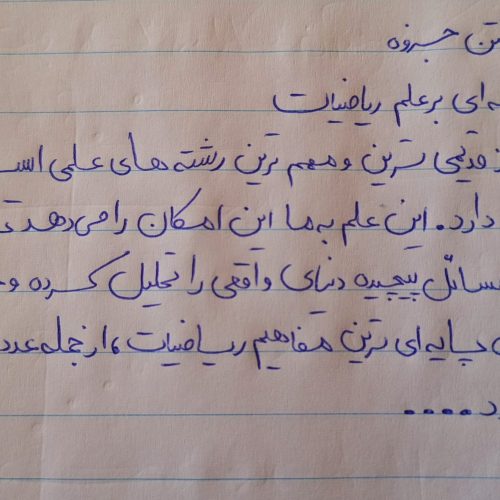 تن جزوه
ه‌ای بر علم ریاضیات
ز قدیمی ترین و مهم ترین رشته های علمی اس
دارد. این علم به ما این امکان را می دهد ت
سائل پیچیده دنیای واقعی را تحلیل کرده و
پایه ای ترین مفاهیم ریاضیات، از جمله عدد
د....